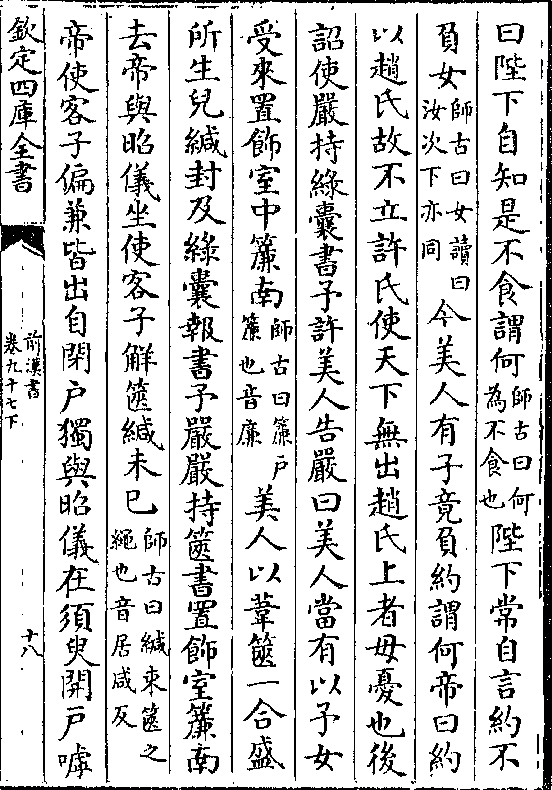 曰陛下自知是不食謂何師古曰何為不食也陛下常自言約不
負女師古曰女讀曰汝次下亦同今美人有子竟負約謂何帝曰約
以趙氏故不立許氏使天下無出趙氏上者毋憂也後
詔使嚴持綠囊書予許美人告嚴曰美人當有以予女
受來置飾室中簾南師古曰簾戶簾也音廉美人以葦篋一合盛
所生兒緘封及綠囊報書予嚴嚴持篋書置飾室簾南
去帝與昭儀坐使客子解篋緘未已師古曰緘束篋之繩也音居咸反
帝使客子偏兼皆出自閉戶獨與昭儀在須臾開戶嘑
欽定四庫全書
前漢書
卷九十七下
十八